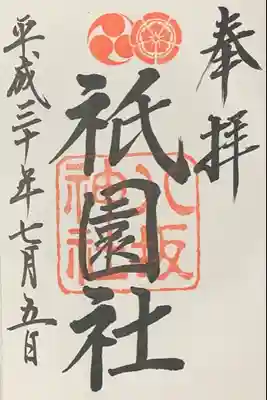 奉拝
祇園社
八坂神社
平成三十年七月五日